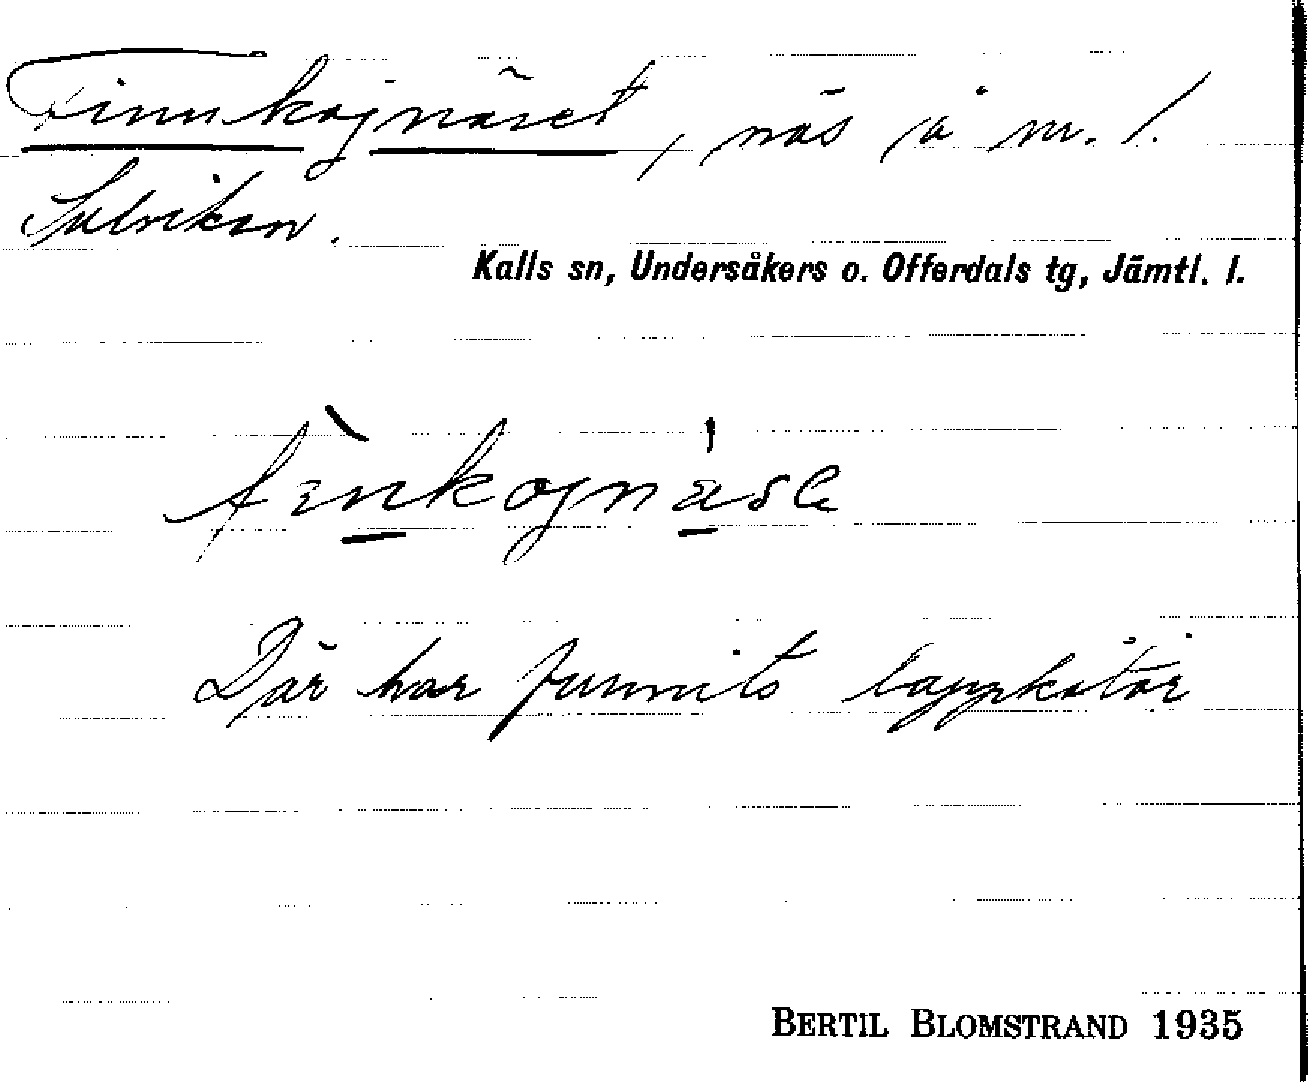 Finnkojnäset, näs å nr. 1.
Sulviken.
Kalls sn, Undersåkers o. Offerdals tg, Jämtl. l.
fìnkojnäse
Där har funnits lappkåtor
BERTIL BLOMSTRAND 1935